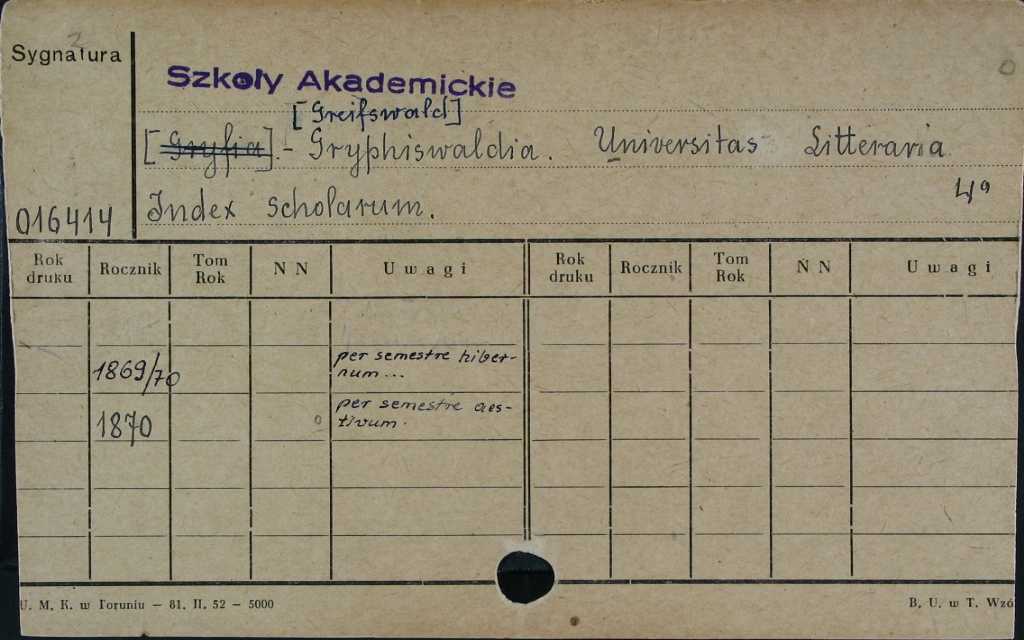 Sygnatura
Szkoły Akademickie
[Greifswald]
[Gryfia]. - Gryphiswaldia. Universitas Litteraria
4°
016414 Index scholarum.
Rok druku Rocznik Tom Rok N N Uwagi Rok druku Rocznik Tom Rok N N Uwagi
1869/70 per semestre hiber-
num...
1870 per semestre aes-
tivum.
U. M. K. w Toruniu — 81. II. 52 — 5000 B. U. w T. Wzó